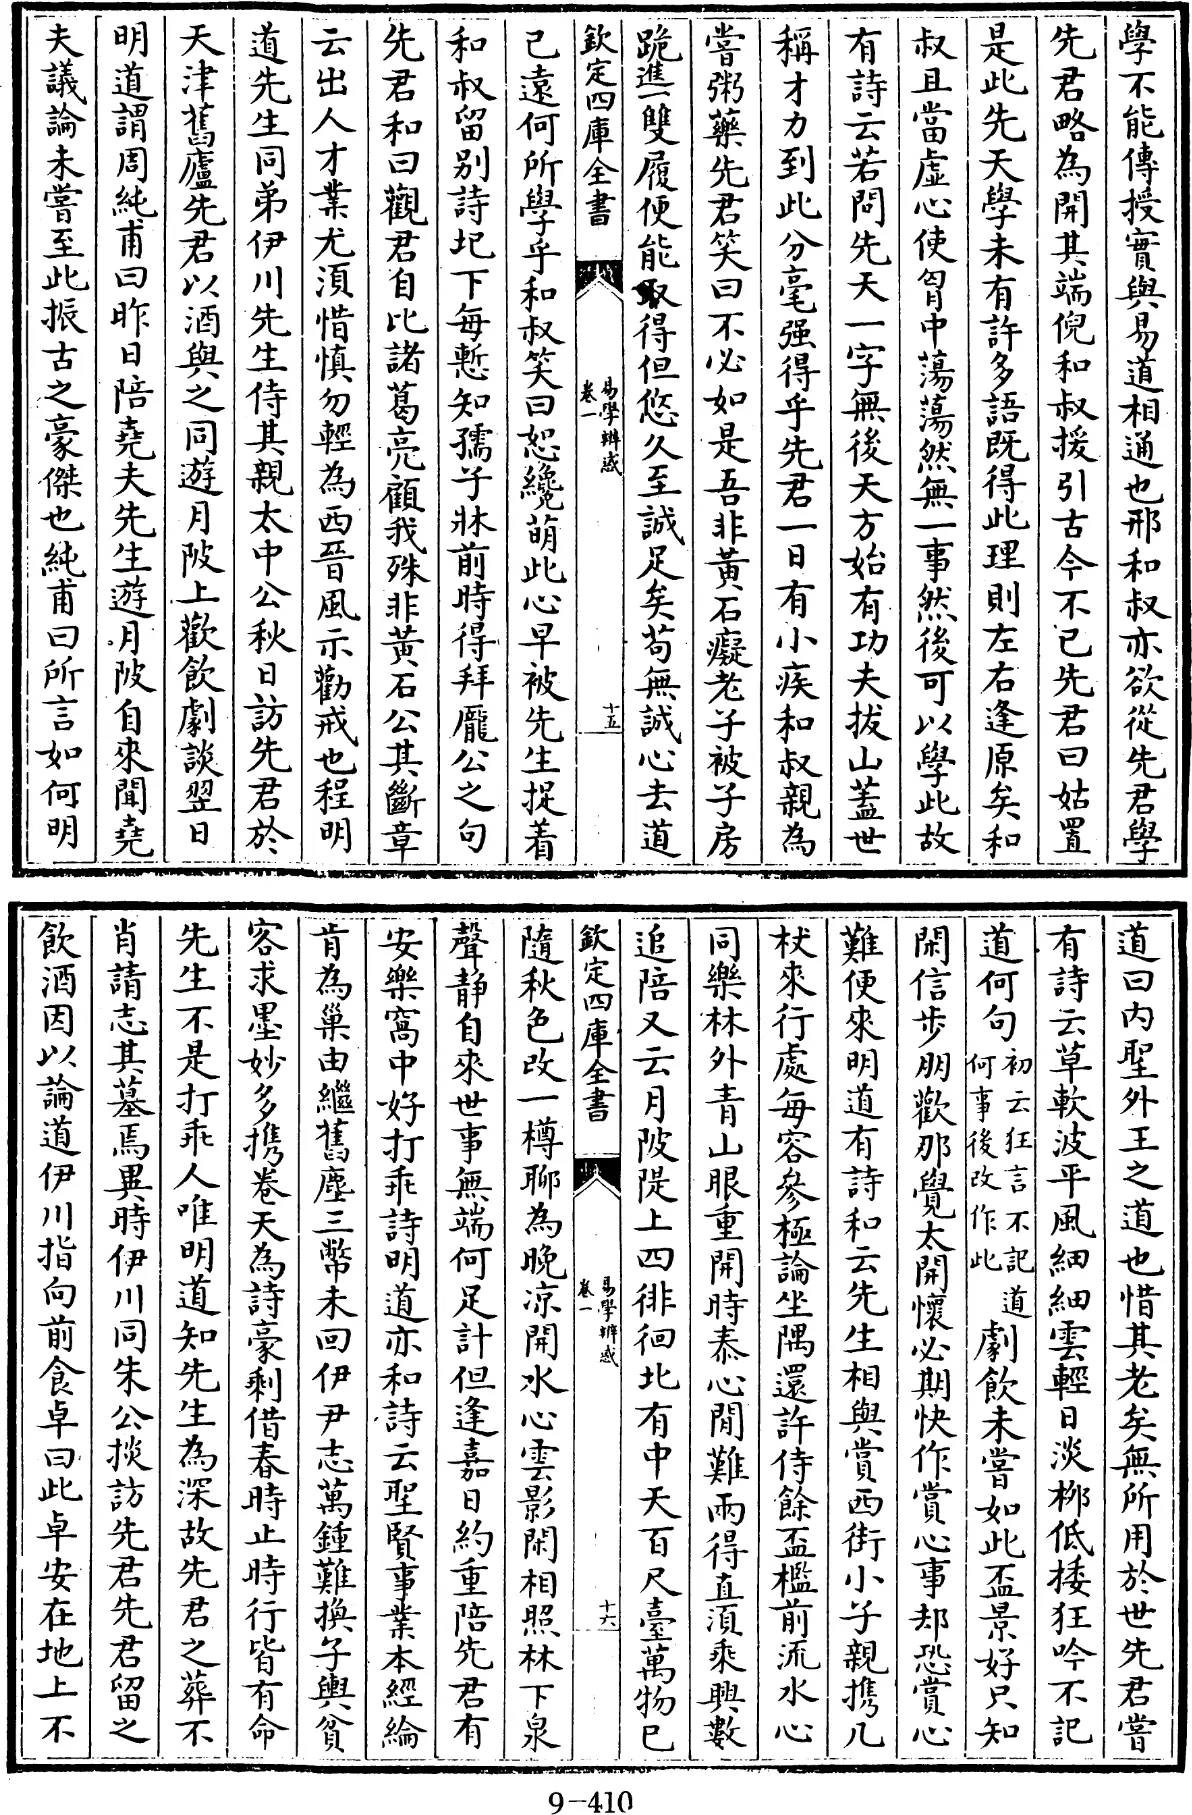 學不能傳授實與易道相通也邢和叔亦欲從先君學
先君略為開其端倪和叔援引古今不已先君曰姑置
是此先天學未有許多語既得此理則左右逢原矣和
叔且當虛心使胷中蕩蕩然無一事然後可以學此故
有詩云若問先天一字無後天方始有功夫拔山蓋世
稱才力到此分毫强得乎先君一日有小疾和叔親為
嘗粥藥先君笑曰不必如是吾非黃石癡老子被子房
跪進一雙履便能取得但悠久至誠足矣苟無誠心去道
欽定四庫全書
易學辨惑
卷一
十五
己遠何所學乎和叔笑曰恕纔萌此心早被先生捉着
和叔留别詩圮下每慙知孺子牀前時得拜龎公之句
先君和曰觀君自比諸葛亮顧我殊非黃石公其斷章
云出人才業尤須惜慎勿輕為西晉風示勸戒也程明
道先生同弟伊川先生侍其親太中公秋日訪先君於
天津舊廬先君以酒與之同遊月陂上歡飲劇談翌日
明道謂周純甫曰昨日陪堯夫先生遊月陂自來聞堯
夫議論未嘗至此振古之豪傑也純甫曰所言如何明
道曰内聖外王之道也惜其老矣無所用於世先君嘗
有詩云草軟波平風細細雲輕日淡栁低捼狂吟不記
道何句初云狂言不記道何事後改作此劇飲未嘗如此盃景好只知
閑信步朋歡那覺太開懷必期快作賞心事却恐賞心
難便來明道有詩和云先生相與賞西街小子親携几
杖來行處每容參極論坐隅還許侍餘盃檻前流水心
同樂林外青山眼重開時泰心閒難兩得直須乘興數
追陪又云月陂隄上四徘徊北有中天百尺臺萬物已
欽定四庫全書
易學辨惑
卷一
十六
隨秋色改一樽聊為晚凉開水心雲影閑相照林下泉
聲静自來世事無端何足計但逢嘉日約重陪先君有
安樂窩中好打乖詩明道亦和詩云聖賢事業本經綸
肯為巢由繼舊塵三幣未回伊尹志萬鍾難換子輿貧
客求墨妙多携卷天為詩豪剩借春時止時行皆有命
先生不是打乖人唯明道知先生為深故先君之葬不
肖請志其墓焉異時伊川同朱公掞訪先君先君留之
飲酒因以論道伊川指向前食卓曰此卓安在地上不
9-410